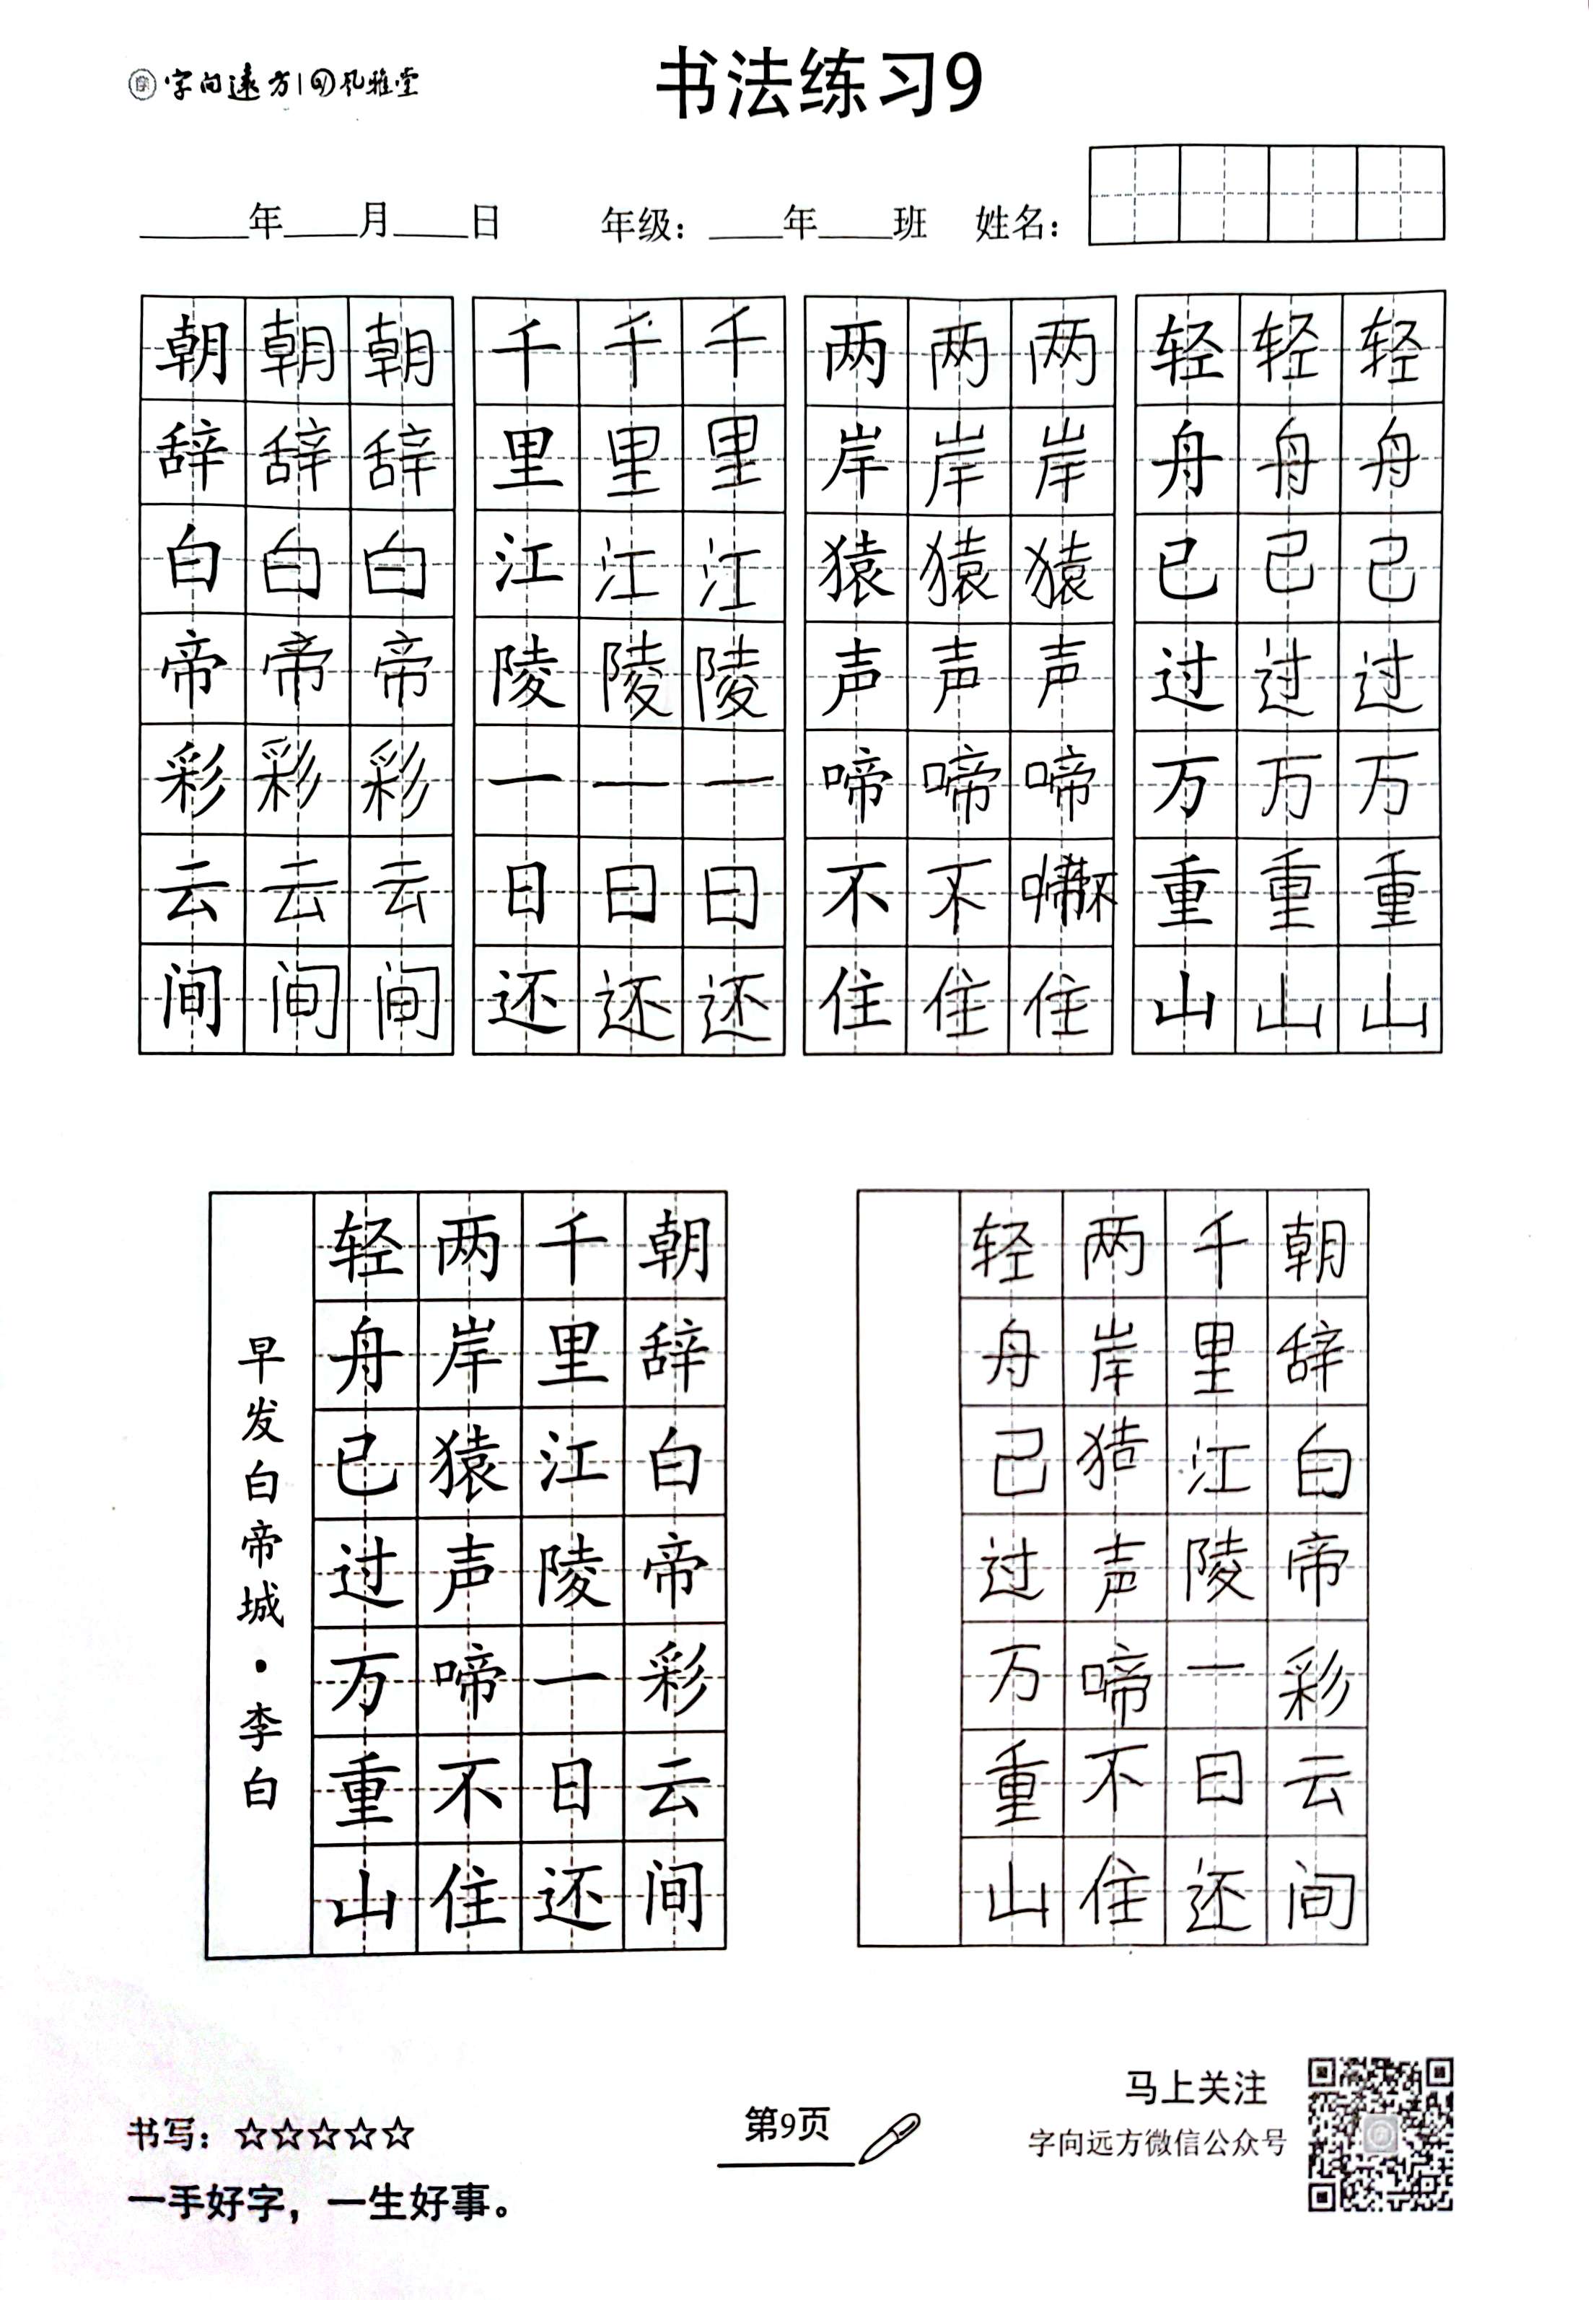 字向远方 | 风雅堂
书法练习9
____年____月____日 年级：____年____班 姓名：
朝辞白帝彩云间
朝辞白帝彩云间
朝辞白帝彩云间
千里江陵一日还
千里江陵一日还
千里江陵一日还
两岸猿声啼不住
两岸猿声啼不住
两岸猿声啼不住
轻舟已过万重山
轻舟己过万重山
轻舟己过万重山
朝辞白帝彩云间
千里江陵一日还
两岸猿声啼不住
轻舟已过万重山
早发白帝城·李白
朝辞白帝彩云间
千里江陵一日还
两岸声啼不住
轻舟己过万重山
书写：☆☆☆☆☆
一手好字，一生好事。
第9页
马上关注
字向远方微信公众号